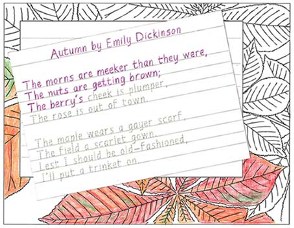 Autumn by Emily Dickinson
The morns are meeker than they were,
The nuts are getting brown;
The berry's cheek is plumper,
The rose is out of town.
The maple wears a gayer scarf,
The field a scarlet gown.
Lest I should be old-fashioned,
I'll put a trinket on.